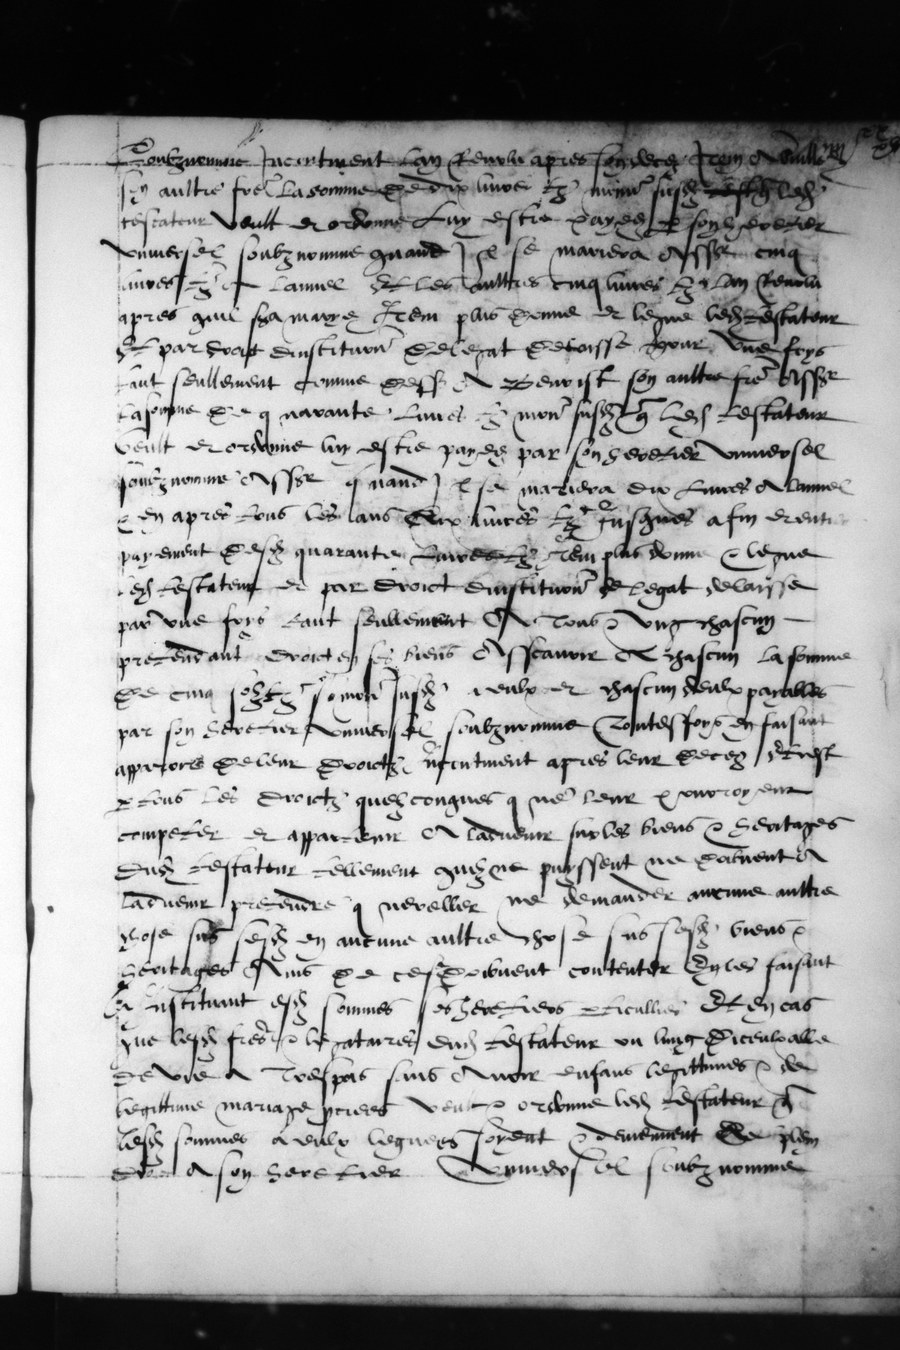 Soubznomme Incontinent lan Revolu apres son deces Item A
son aultre frere La somme de dix livres tz monn susd led
testateur veult et ordonne luy estre payez p son heretier
universel soubznomme quand Il se mariera Assr cinq
livres tz A lannel Et les aultres cinq livres tz lan Revolu
apres quil sera marye Item plus donne et legue led testateur
Et par droit dinstitution de legat delaisse pour une foys
tant seullement comme dess A Benoist son aultre frere Assr
La somme de quarante livres tz monn susd q led testateur
veult et ordonne luy estre payez par son heretier universel
soubznomme Assr quand Il se mariera dix livres A lannel
Et en apres tous les ans dix livres tz Jusques a fin dentier
payement desd quarante livres tz Item plus donne et legue
led testateur et par droict dinstitution de legat delaisse
par une foys tant seullement A tous et ung chascun
pretendant droict en ses biens Asscavoir A chascun La somme
de cinq solz tz monn susd a eulx et chascun deulx payables
par son heretier universel soubznomme Toutesfoys en faisant
apparoir de leur droictz Incontinent apres leur decez Et
p tous les droictz quelzconques que leur pourroyent
competer et appartenir A ladvenir sur les biens et heritages
dud testateur tellement quilz ne puyssent ne doibvent A
ladvenir pretendre quereller ne demander aucune aultre
chose sus sesd en aucune aultre chose sus sesd biens et
heritages Ains de ce se doibvent contenter En les faisant
Et Instituant esd sommes ses heretiers particulliers Et en cas
que lesd freres et legataires dud testateur ou lung diceulx alle
de vie A trespas sans Avoir enfans legittimes et de
legittime mariage procrees veult et ordonne led testateur q
lesd sommes a eulx leguees soyent et demeurent de plein
droit A son heretier Universel soubznomme